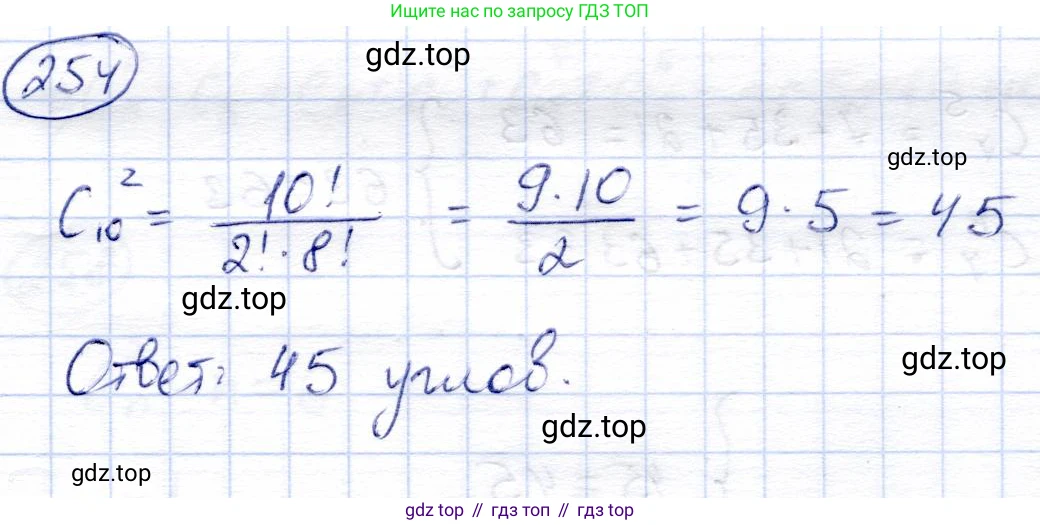 Ищите нас по запросу ГДЗ ТОП
254
gdz.top
gdz.top
C₁₀² = 10! / 2!·8! = 9·10 / 2 = 9·5 = 45
gdz.top
Ответ: 45 углов.
gdz.top
gdz.top
gdz.top
gdz.top // гдз топ // гдз top